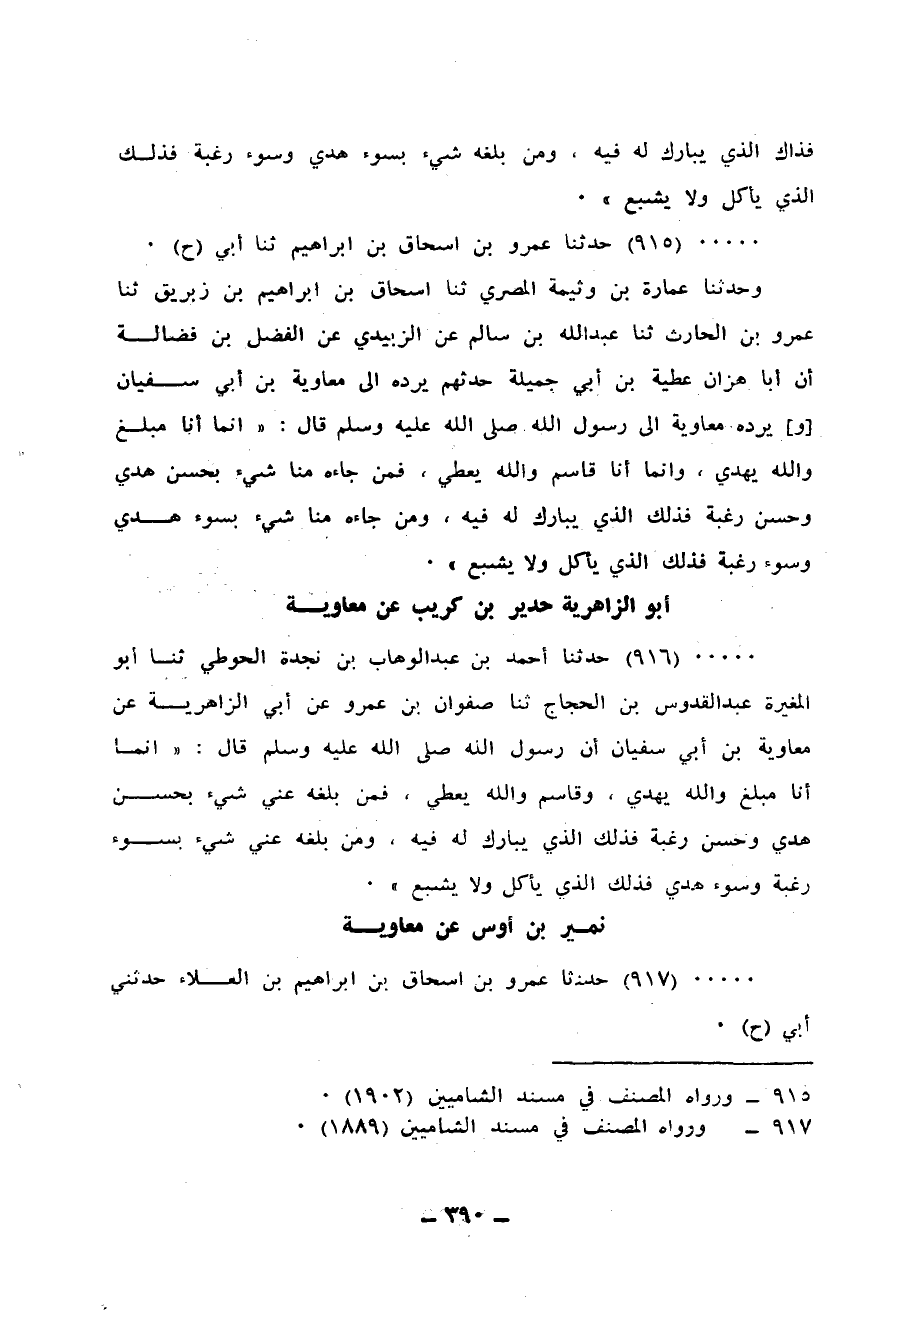 فذاك الذي يبارك له فيه ، ومن بلغه شيء بسوء هدي وسوء رغبة فذلـــك
الذي يأكل ولا يشبع » ٠
٠٠٠٠٠ (٩١٥) حدثنا عمرو بن اسحاق بن ابراهيم ثنا أبي (ح) ٠
وحدثنا عمارة بن وثيمة المصري ثنا اسحاق بن ابراهيم بن زبريق ثنا
عمرو بن الحارث ثنا عبدالله بن سالم عن الزبيدي عن الفضل بن فضالـــة
أن أبا هزان عطية بن أبي جميلة حدثهم يرده الى معاوية بن أبي ســـفيان
[و] يرده معاوية الى رسول الله صلى الله عليه وسلم قال : « انما أنا مبلـــغ
والله يهدي ، وانما أنا قاسم والله يعطي ، فمن جاءه منا شيء بحسن هدي
وحسن رغبة فذلك الذي يبارك له فيه ، ومن جاءه منا شيء بسوء هـــدي
وسوء رغبة فذلك الذي يأكل ولا يشبع » ٠
أبو الزاهرية حدير بن كريب عن معاويـــة
٠٠٠٠٠ (٩١٦) حدثنا أحمد بن عبدالوهاب بن نجدة الحوطي ثنـــا أبو
المغيرة عبدالقدوس بن الحجاج ثنا صفوان بن عمرو عن أبي الزاهريـــة عن
معاوية بن أبي سفيان أن رسول الله صلى الله عليه وسلم قال : « انمـــا
أنا مبلغ والله يهدي ، وقاسم والله يعطي ، فمن بلغه عني شيء بحســـن
هدي وحسن رغبة فذلك الذي يبارك له فيه ، ومن بلغه عني شيء بســـوء
رغبة وسوء هدي فذلك الذي يأكل ولا يشبع » ٠
نمـــير بن أوس عن معاويـــة
٠٠٠٠٠ (٩١٧) حدثنا عمرو بن اسحاق بن ابراهيم بن العـــلاء حدثني
أبي (ح) ٠
٩١٥ ــ ورواه المصنف في مسند الشاميين (١٩٠٢) ٠
٩١٧ ــ ورواه المصنف في مسند الشاميين (١٨٨٩) ٠
ــ ٣٩٠ ــ